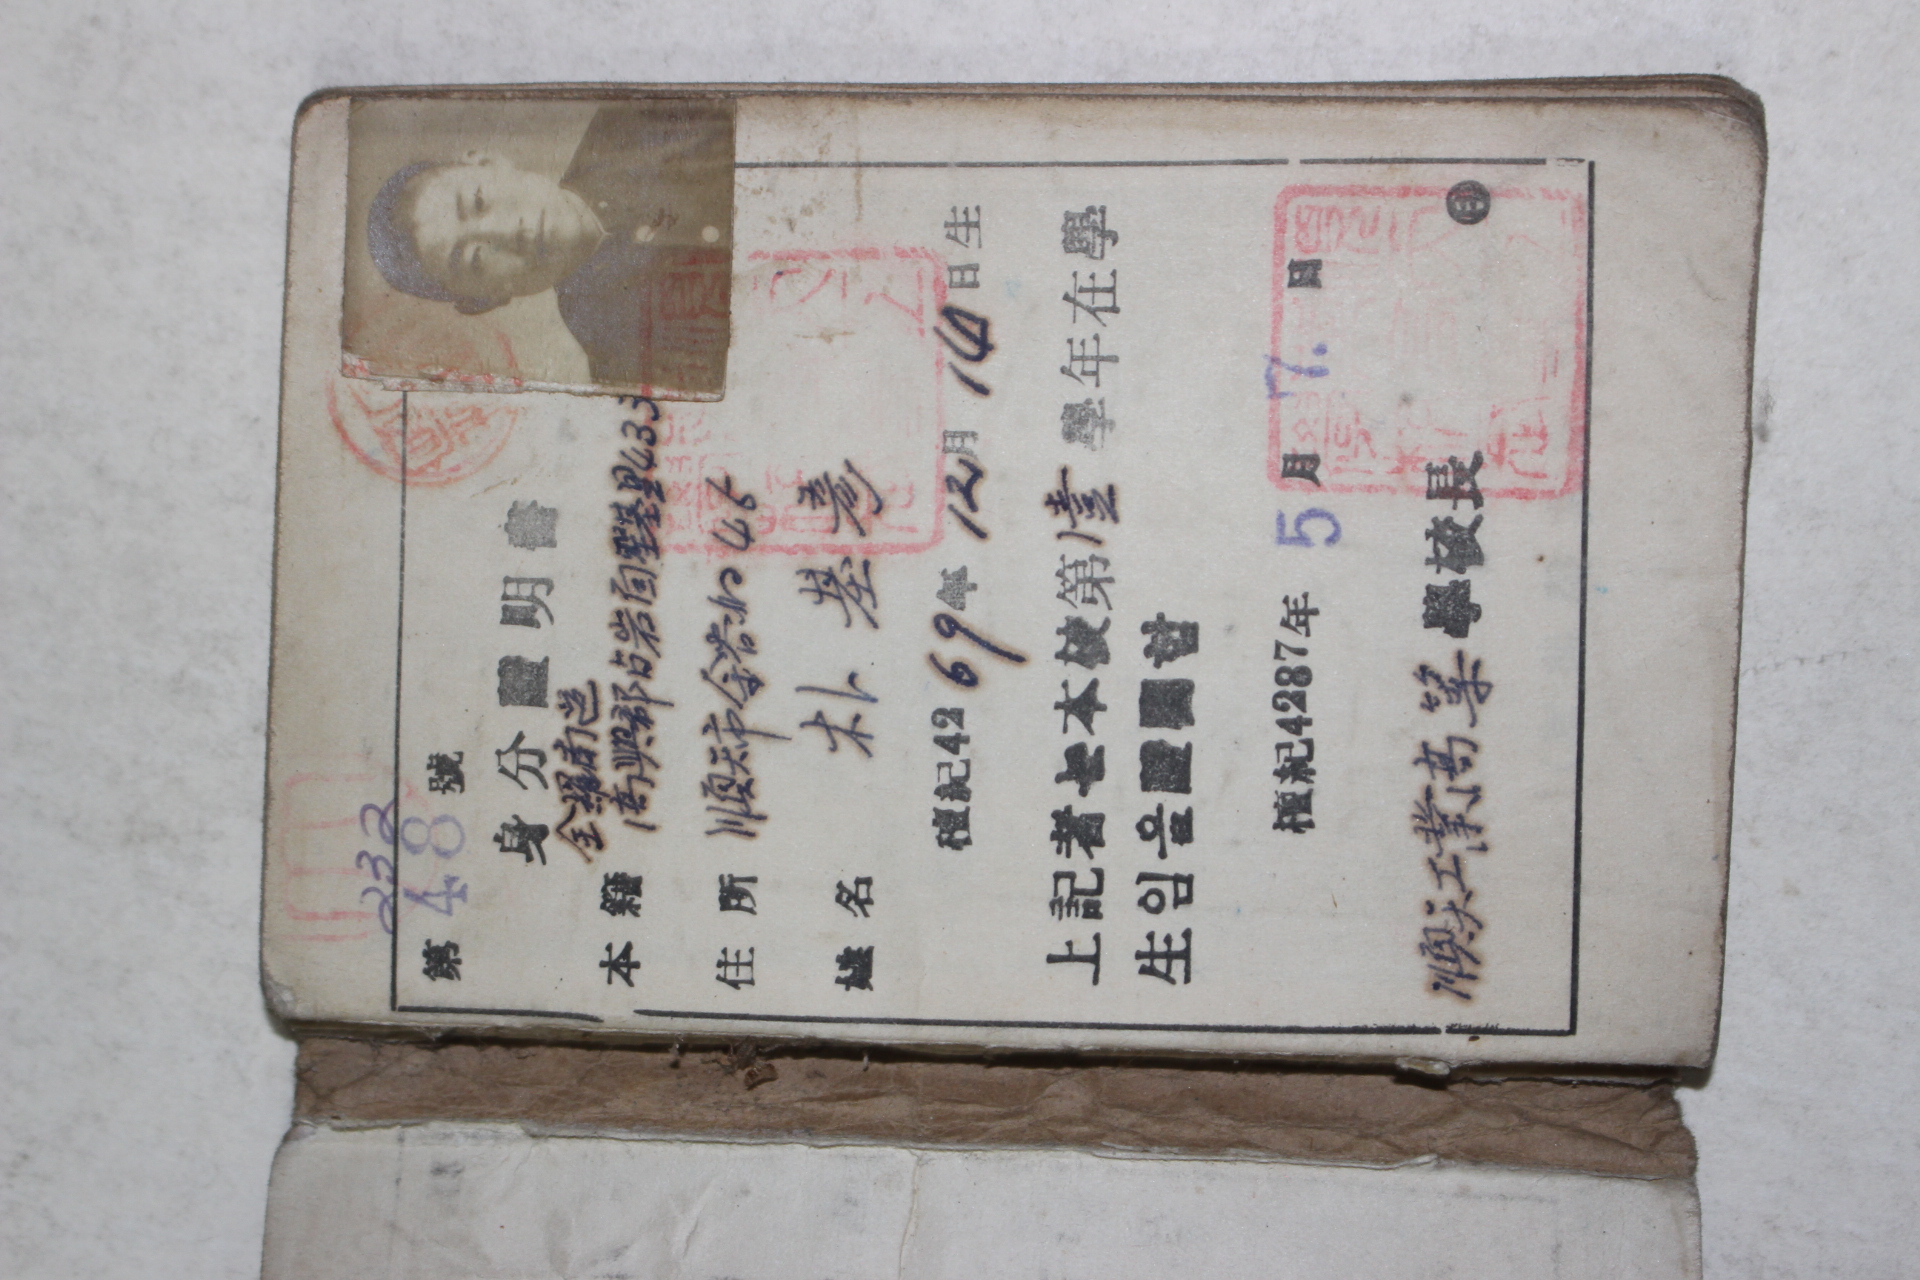 232
第 48 號
身分證明書
全羅南道
本籍 高興郡占岩面聖基里433
住所 順天市金谷北 45
姓名 朴基彦
檀紀4269年 12月 14日生
上記者는本校第壹學年在學
生임을證明함
檀紀4287年 5月 7.日
順天工業高等學校長 印